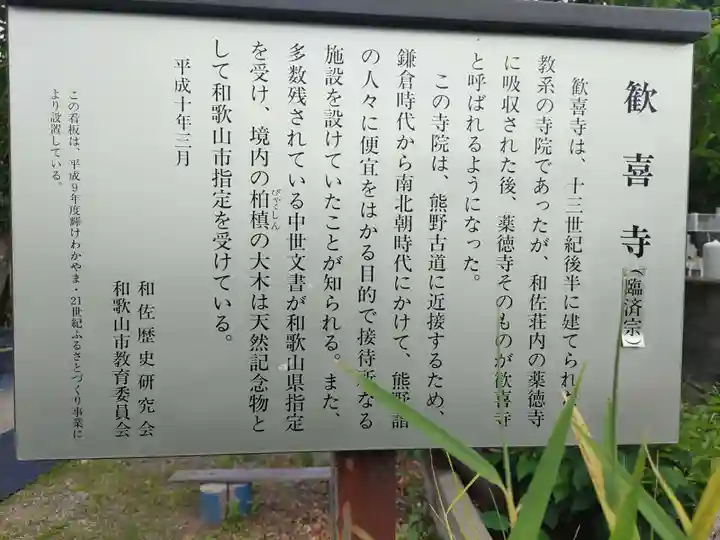 歓喜寺（臨済宗）
歓喜寺は、十三世紀後半に建てられ
教系の寺院であったが、和佐荘内の薬徳寺
に吸収された後、薬徳寺そのものが歓喜寺
と呼ばれるようになった。
この寺院は、熊野古道に近接するため、
鎌倉時代から南北朝時代にかけて、熊野詣
の人々に便宜をはかる目的で接待所なる
施設を設けていたことが知られる。また、
多数残されている中世文書が和歌山県指定
を受け、境内の柏槙の大木は天然記念物と
びゃくしん
して和歌山市指定を受けている。
平成十年三月
和佐歴史研究会
和歌山市教育委員会
この看板は、平成9年度輝けわかやま・21世紀ふるさとづくり事業に
より設置している。